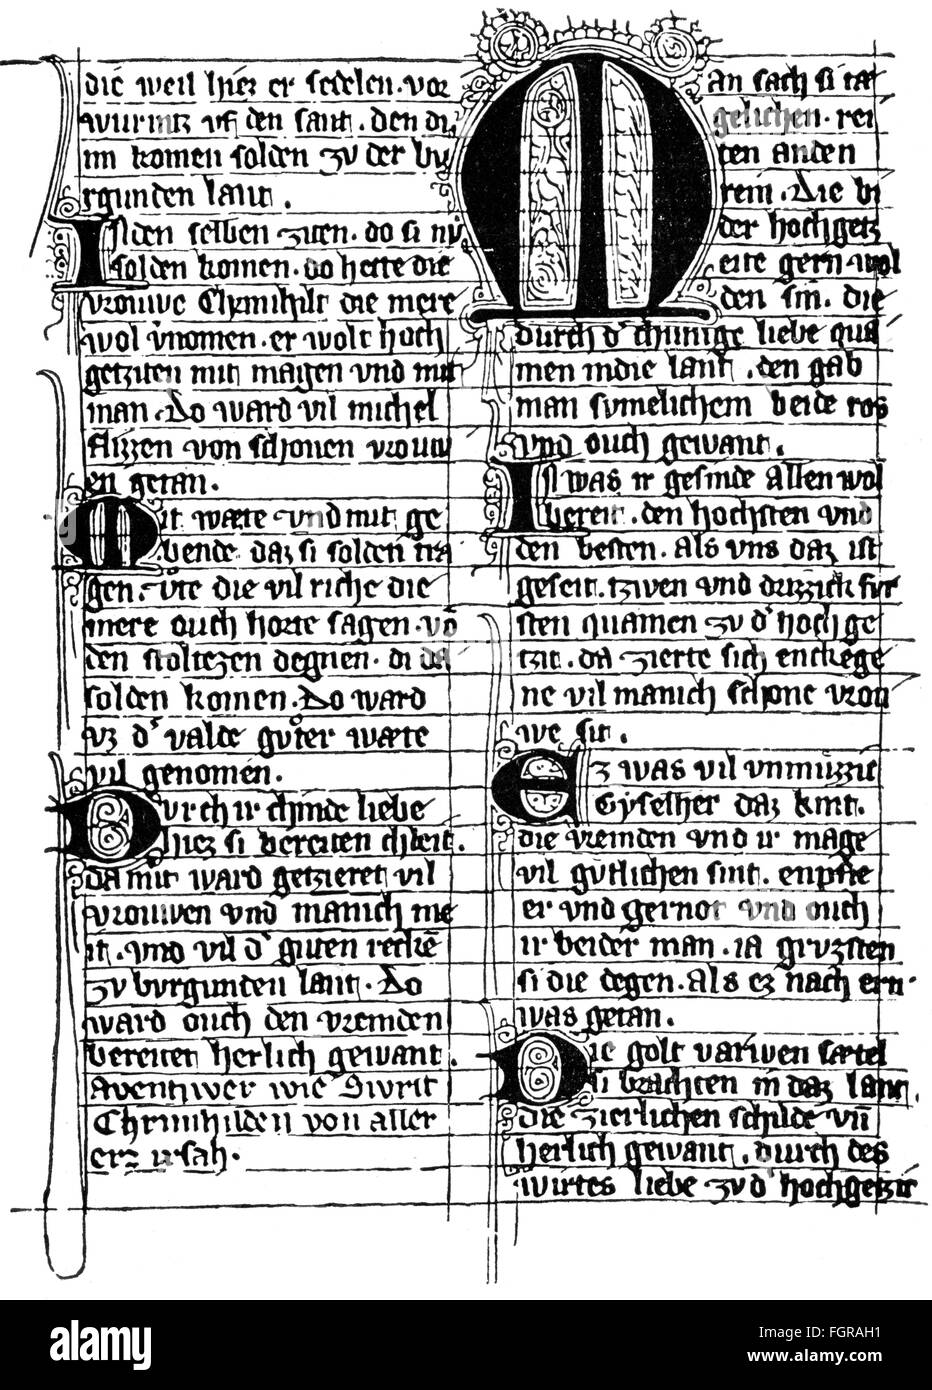 die weil hiez er sedelen. vor
wurmtz vf den sant. den di
im komen solden zv der bu
rgunden lant.
IN den selben ziten. do si nv
solden komen. do hette die
vrouwe Chrimhilt die mere
wol v'nomen. er wolt hoch
getziten mit magen vnd mit
man. Do ward vil michel
flizzen von schonen vrouw
en getan.
Mit wæte vnd mit ge
bende daz si solden tra
gen. die vil riche die
mere ouch horte sagen. vō
den stoltzen degnen. di da
solden komen. Do ward
vz d' valde gůter wæte
vil genomen.
Durch ir chinde liebe
hiez si bereiten
da mit ward getzieret vil
vrouwen vnd manich me
it. vnd vil d' guten reckē
zv burgunden lant. Do
ward ouch den vremden
bereitet herlich gewant.
Aventiwer wie Sivrit
Chrimhilden von aller
erst ersah.
Man sach si tæ
gelichen. rei
ten an den
rein. Die bi
der hochgetz
eite gern wol
den sin. die
durch d' chunige liebe qua
men in die lant. den gab
man svmelichem beide ros
vnd ouch gewant.
IN was ir gesinde allen wol
bereit. den hochsten vnd
den besten. als vns daz ist
geseit. tzwen vnd drizzick fvr
sten quamen zv d' hoch ge
tzit. da zierte sich enckege
ne vil manich schone vrou
we sit.
Ez was vil vnmvzzic
Gyselher daz kint.
die vremden vnd ir mage
vil gvtlichen sint. enpfie
er vnd gernot vnd ouch
ir beider man. ia grvzsten
si die degen. als ez nach ern
was getan.
Die golt varwen sætel
si brachten in daz lant.
die zierlichen schilde vn̄
herlich gewant. durch des
wirtes liebe zv d' hochgetzit
alamy stock photo
FGRAH1
www.alamy.com